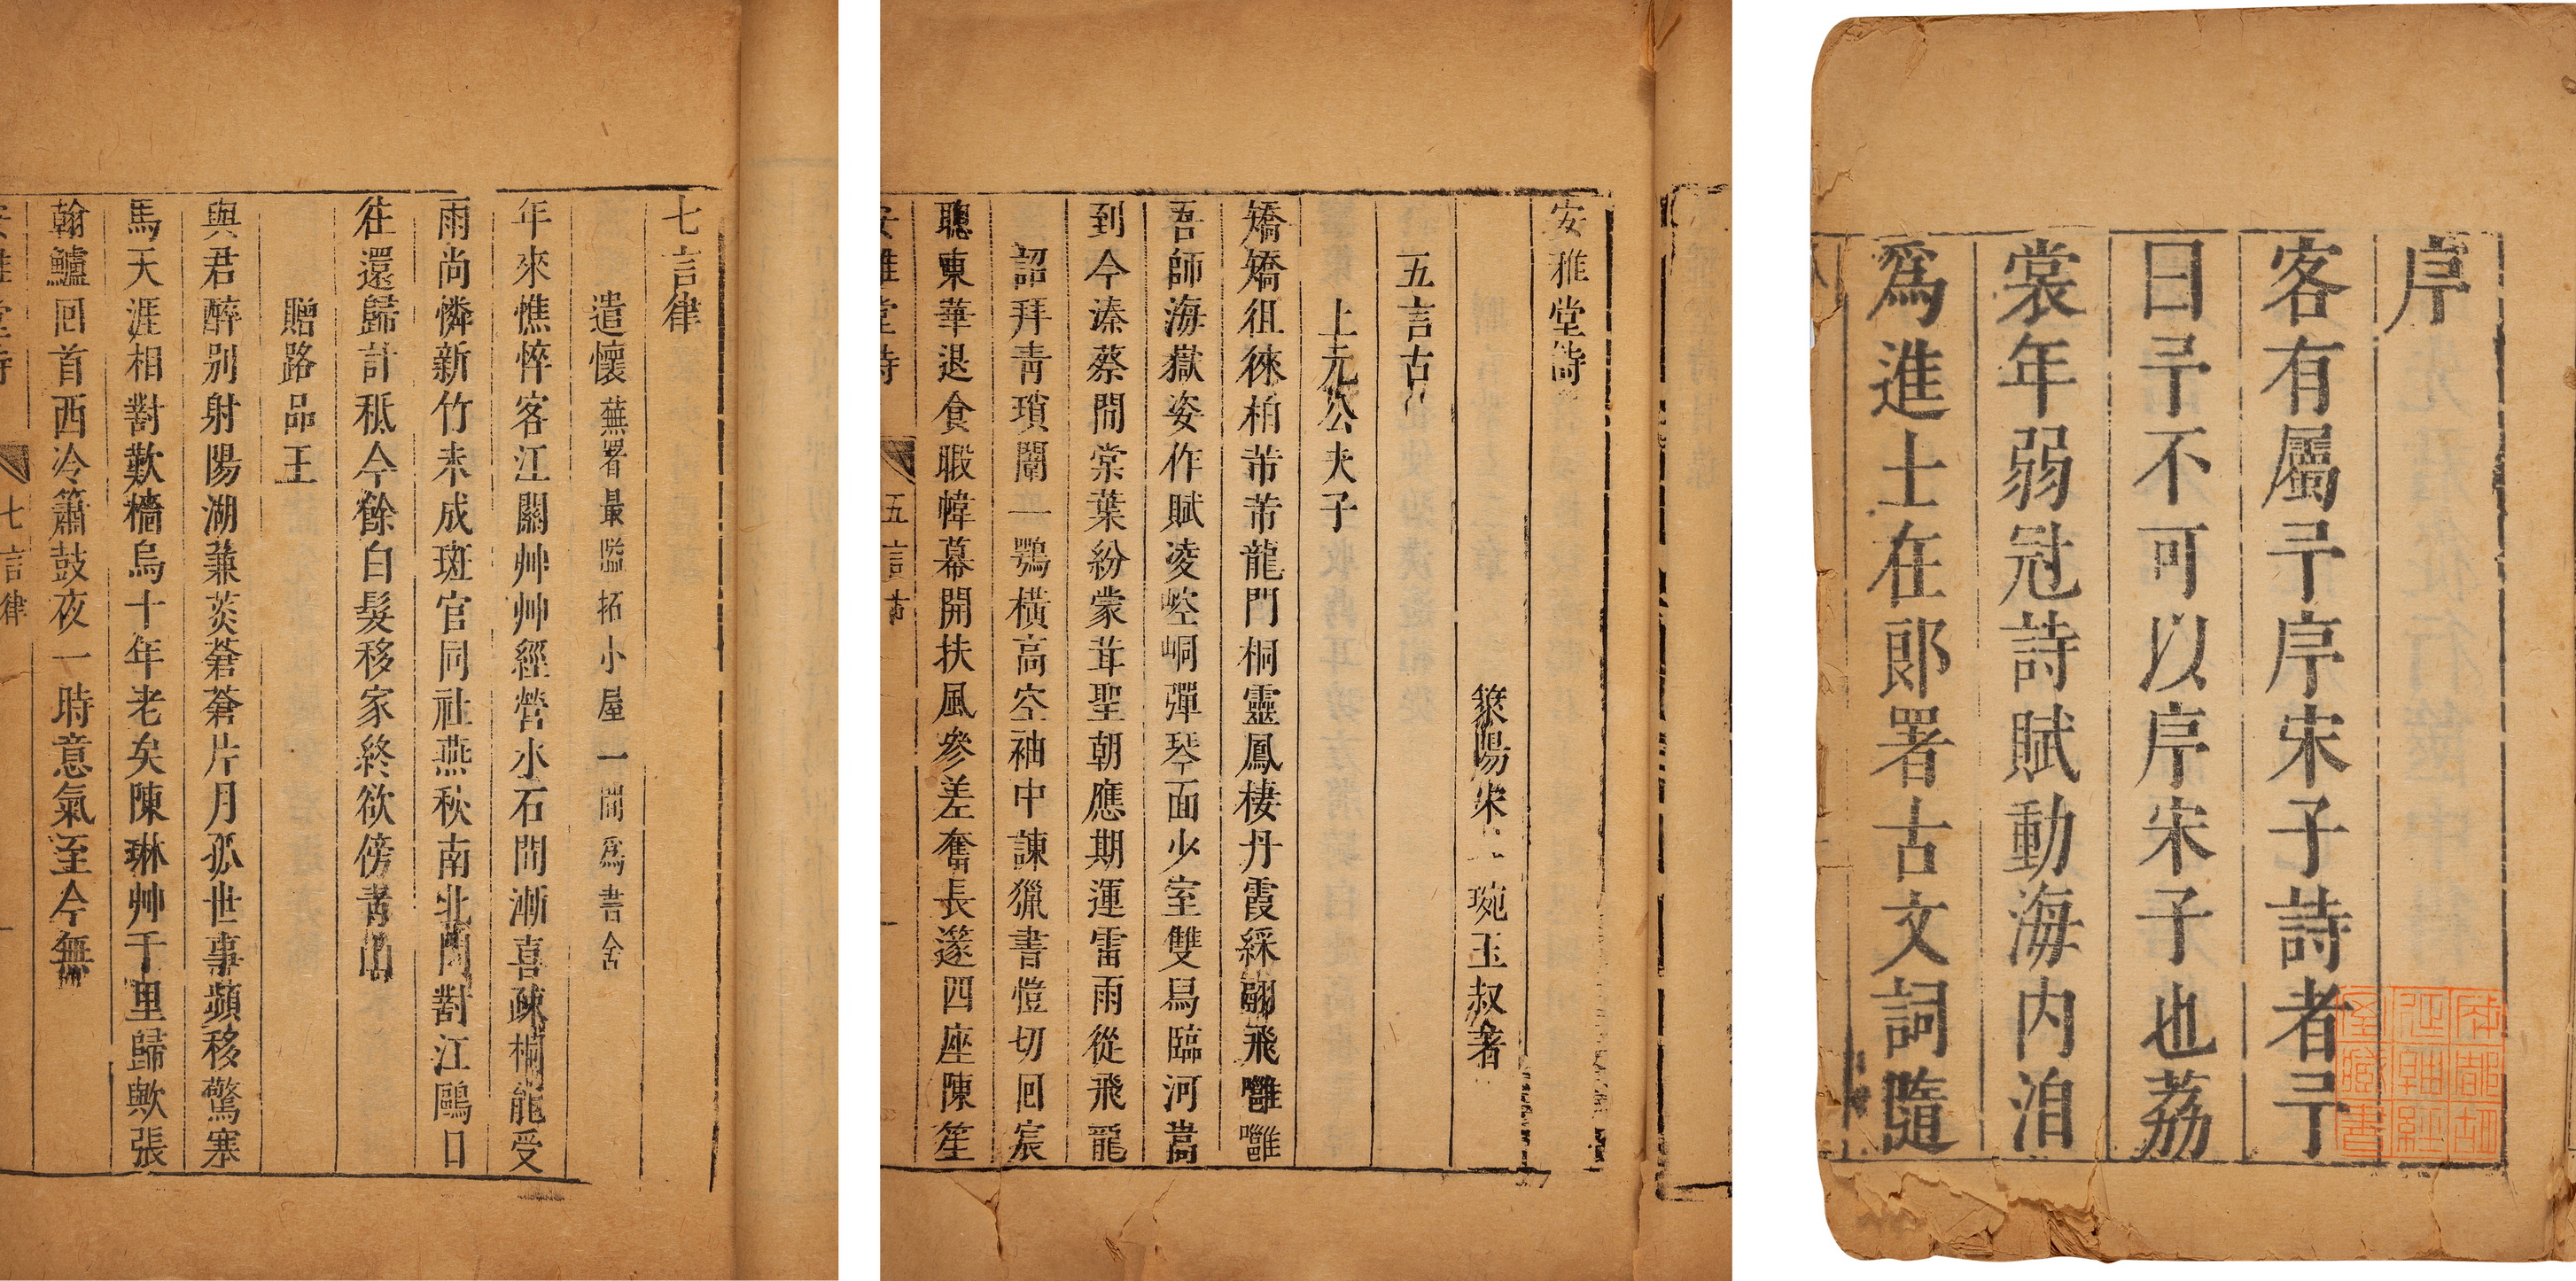 序
客有屬予序宋子詩者予
曰予不可以序宋子也荔
裳年弱冠詩賦動海内洎
爲進士在郎署古文詞隨
安雅堂詩
萊陽宋琬玉叔著
五言古
上元公夫子
矯矯徂徠柏芾芾龍門桐靈鳳棲丹霞綵翮飛雝雝
吾師海嶽姿作賦凌崆峒彈琴面少室雙舄臨河嵩
到今溱蔡間棠葉紛蒙茸聖朝應期運雷雨從飛龍
詔拜青瑣闥一鶚橫高空袖中諫獵書愷切回宸
聰東華退食暇幃幕開扶風參差奮長邃四座陳笙
安雅堂詩 五言古
七言律
遣懷 蕪署最隘拓小屋一間爲書舍
年來憔悴客江關艸艸經營小石間漸喜疎桐能受
雨尚憐新竹未成斑官同社燕秋南北門對江鷗日
往還歸計秪今餘白髮移家終欲傍青山
贈路品王
與君醉别射陽湖蒹菼蒼蒼片月孤世事蘋移驚塞
馬天涯相對歎檣烏十年老矣陳琳艸千里歸歟張
翰鱸回首西泠簫鼓夜一時意氣至今無
安雅堂詩 七言律 一